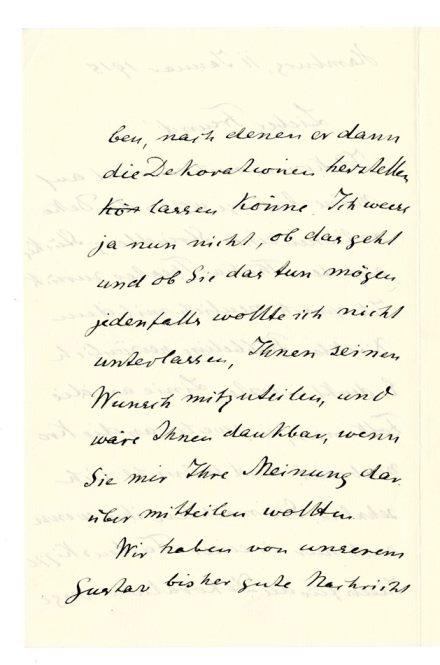 ben, nach denen er dann
die Dekorationen herstellen
Kön lassen könne. Ich weiss
ja nun nicht, ob das geht
und ob Sie das tun mögen,
jedenfalls wollte ich nicht
unterlassen, Ihnen seinen
Wunsch mitzuteilen, und
wäre Ihnen dankbar, wenn
Sie mir Ihre Meinung dar-
über mitteilen wollten.
Wir haben von unserem
Gustav bisher gute Nachricht